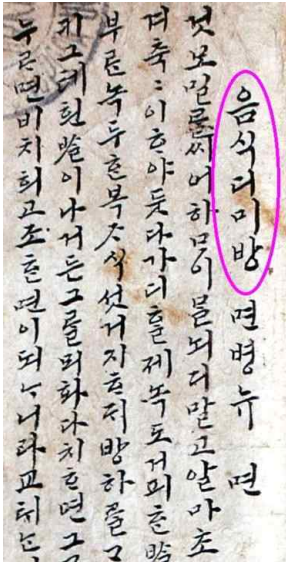 음식디미방 면병뉴 면
것모밀ᄅᆞᆯ 씨어 하 므이 믈뇌디 말고 알마초
겨 축축이 ᄒᆞ야 둣다가 디흘 제 녹도 거피ᄒᆞᆫ ᄡᆞᆯ
녹두 ᄒᆞᆫ 복ᄌᆞ식 섯거 지ᄒᆞ 방하ᄅᆞᆯ 그
ᄡᆞᆯ이 나거든 그ᄅᆞᆯ 뫼화 다 ᄒᆞ면 그
누르면 비치 희고 조ᄒᆞᆫ 면이 되ᄂᆞ니라 교ᄐᆡᄂᆞᆫ